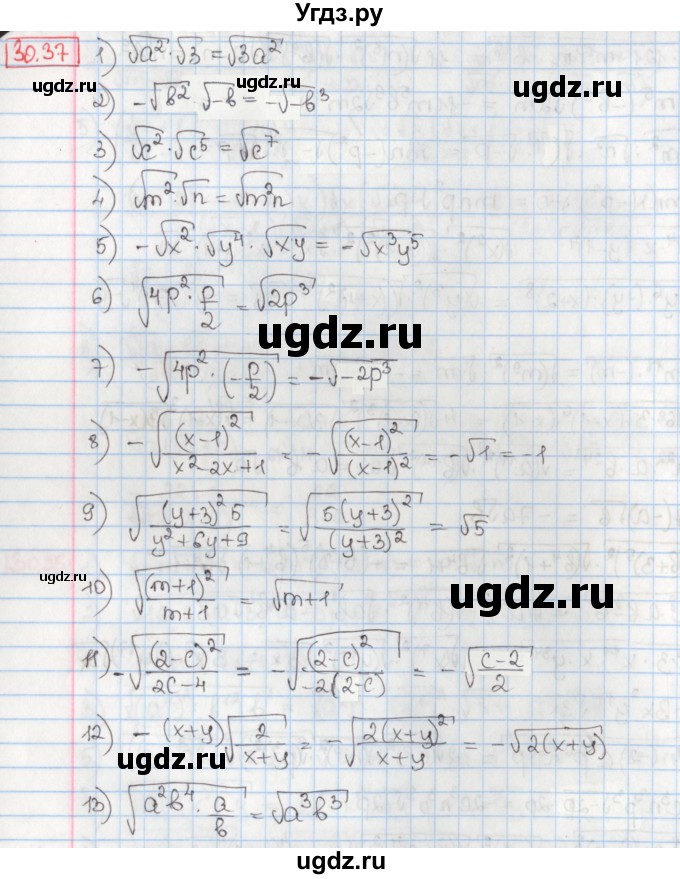 Угдз.ру
30.37 1) √a² · √3 = √3a²
ugdz.ru
ugdz.ru
ugdz.ru
2) -√b² · √-b = -√-b³
3) √c² · √c⁵ = √c⁷
4) √m² · √n = √m²n
5) -√x² · √y⁴ · √xy = -√x³y⁵
6) √4p² · p/2 = √2p³
ugdz.ru
7) -√4p² · (-p/2) = -√-2p³
8) -√(x-1)²/x²-2x+1 = -√(x-1)²/(x-1)² = -√1 = -1
9) √(y+3)² 5/y²+6y+9 = √5(y+3)²/(y+3)² = √5
10) √(m+1)²/m+1 = √m+1
ugdz.ru
11) -√(2-c)²/2c-4 = -√(2-c)²/-2(2-c) = -√c-2/2
ugdz.ru
ugdz.ru
12) -(x+y)√2/x+y = -√2(x+y)²/x+y = -√2(x+y)
13) √a²b⁴ · a/b = √a³b³
ugdz.ru